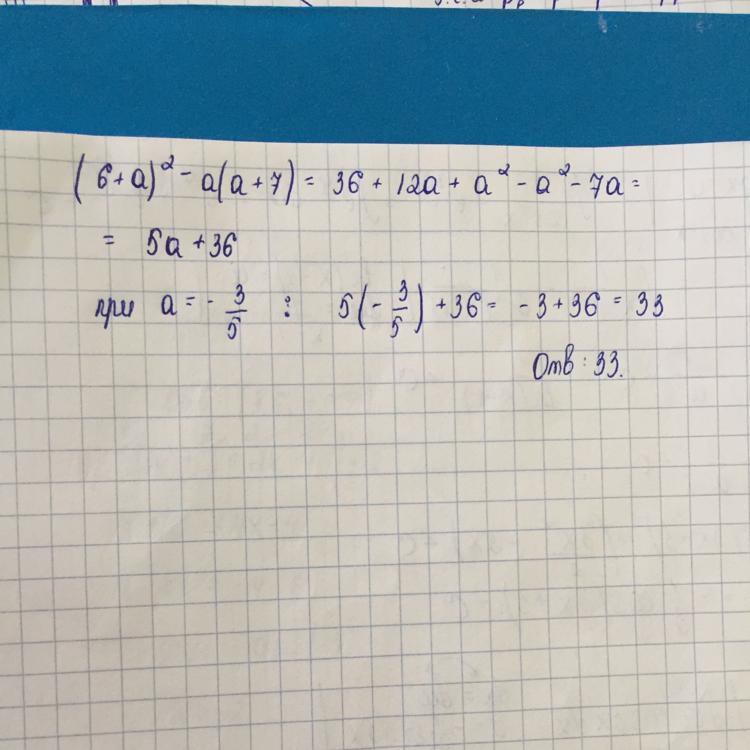 (6+a)² - a(a+7) = 36 + 12a + a² - a² - 7a =
= 5a + 36
при a = - 3/5 : 5(- 3/5) + 36 = - 3 + 36 = 33
Отв: 33.